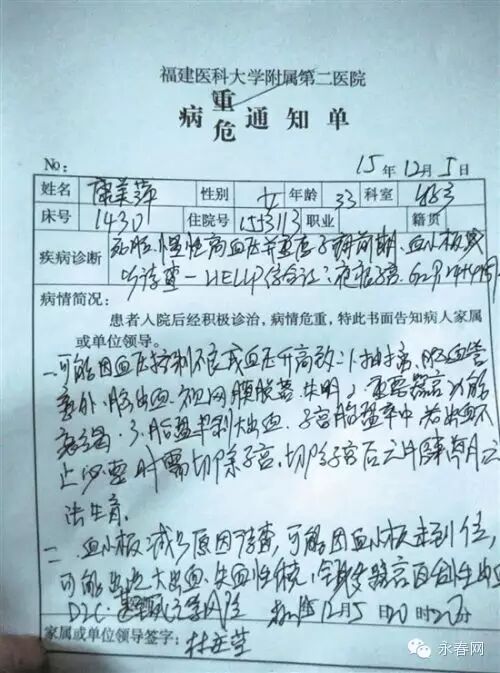 福建医科大学附属第二医院
病重危通知单
No: 15年12月5日
姓名 康美萍 性别 女 年龄 33 科室
床号 1430 住院号 1553113 职业 籍贯
疾病诊断 死胎、慢性高血压并重度子痫前期、血小板减
少待查-HELLP综合征?疤痕子宫
病情简况:
患者入院后经积极诊治,病情危重,特此书面告知病人家属
或单位领导。
一、可能因血压控制不良或血压升高致:1.抽搐、脑血管
意外、脑出血、视网膜脱落、失明 2.重要器官功能
衰竭 3.胎盘早剥大出血、子宫胎盘卒中 若出血不
止必要时需切除子宫,切除子宫后无月经 无
法生育。
二、血小板减少原因待查,可能因血小板
可能出现大出血、失血性休克、全身多脏器
DIC 12月5日20时20分
家属或单位领导签字:
永春网